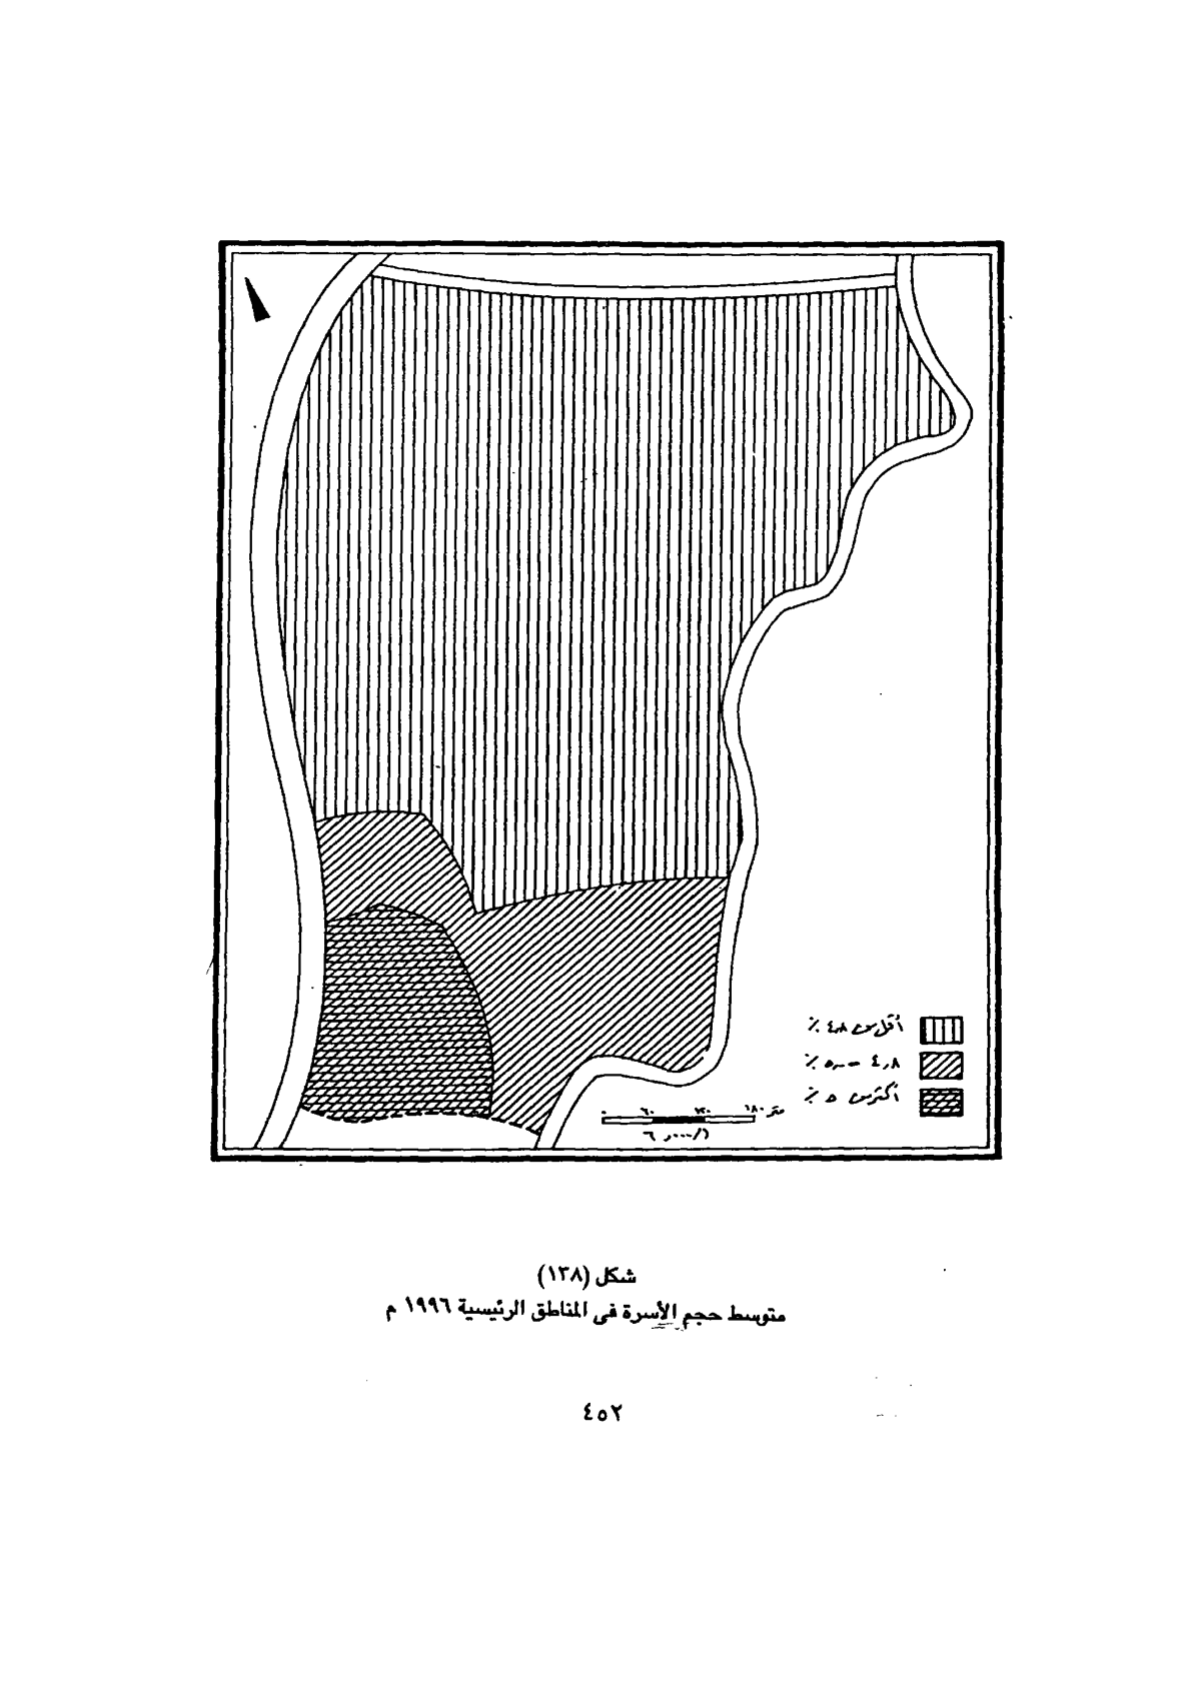 أقل من ٤٫٨ ٪
٤٫٨ – ٥٫٠ ٪
أكثر من ٥ ٪
٠ ٦٠ ١٢٠ ١٨٠ متر
١/٦٠٠٠
شكل (١٣٨)
متوسط حجم الأسرة فى المناطق الرئيسية ١٩٩٦ م
٤٥٢